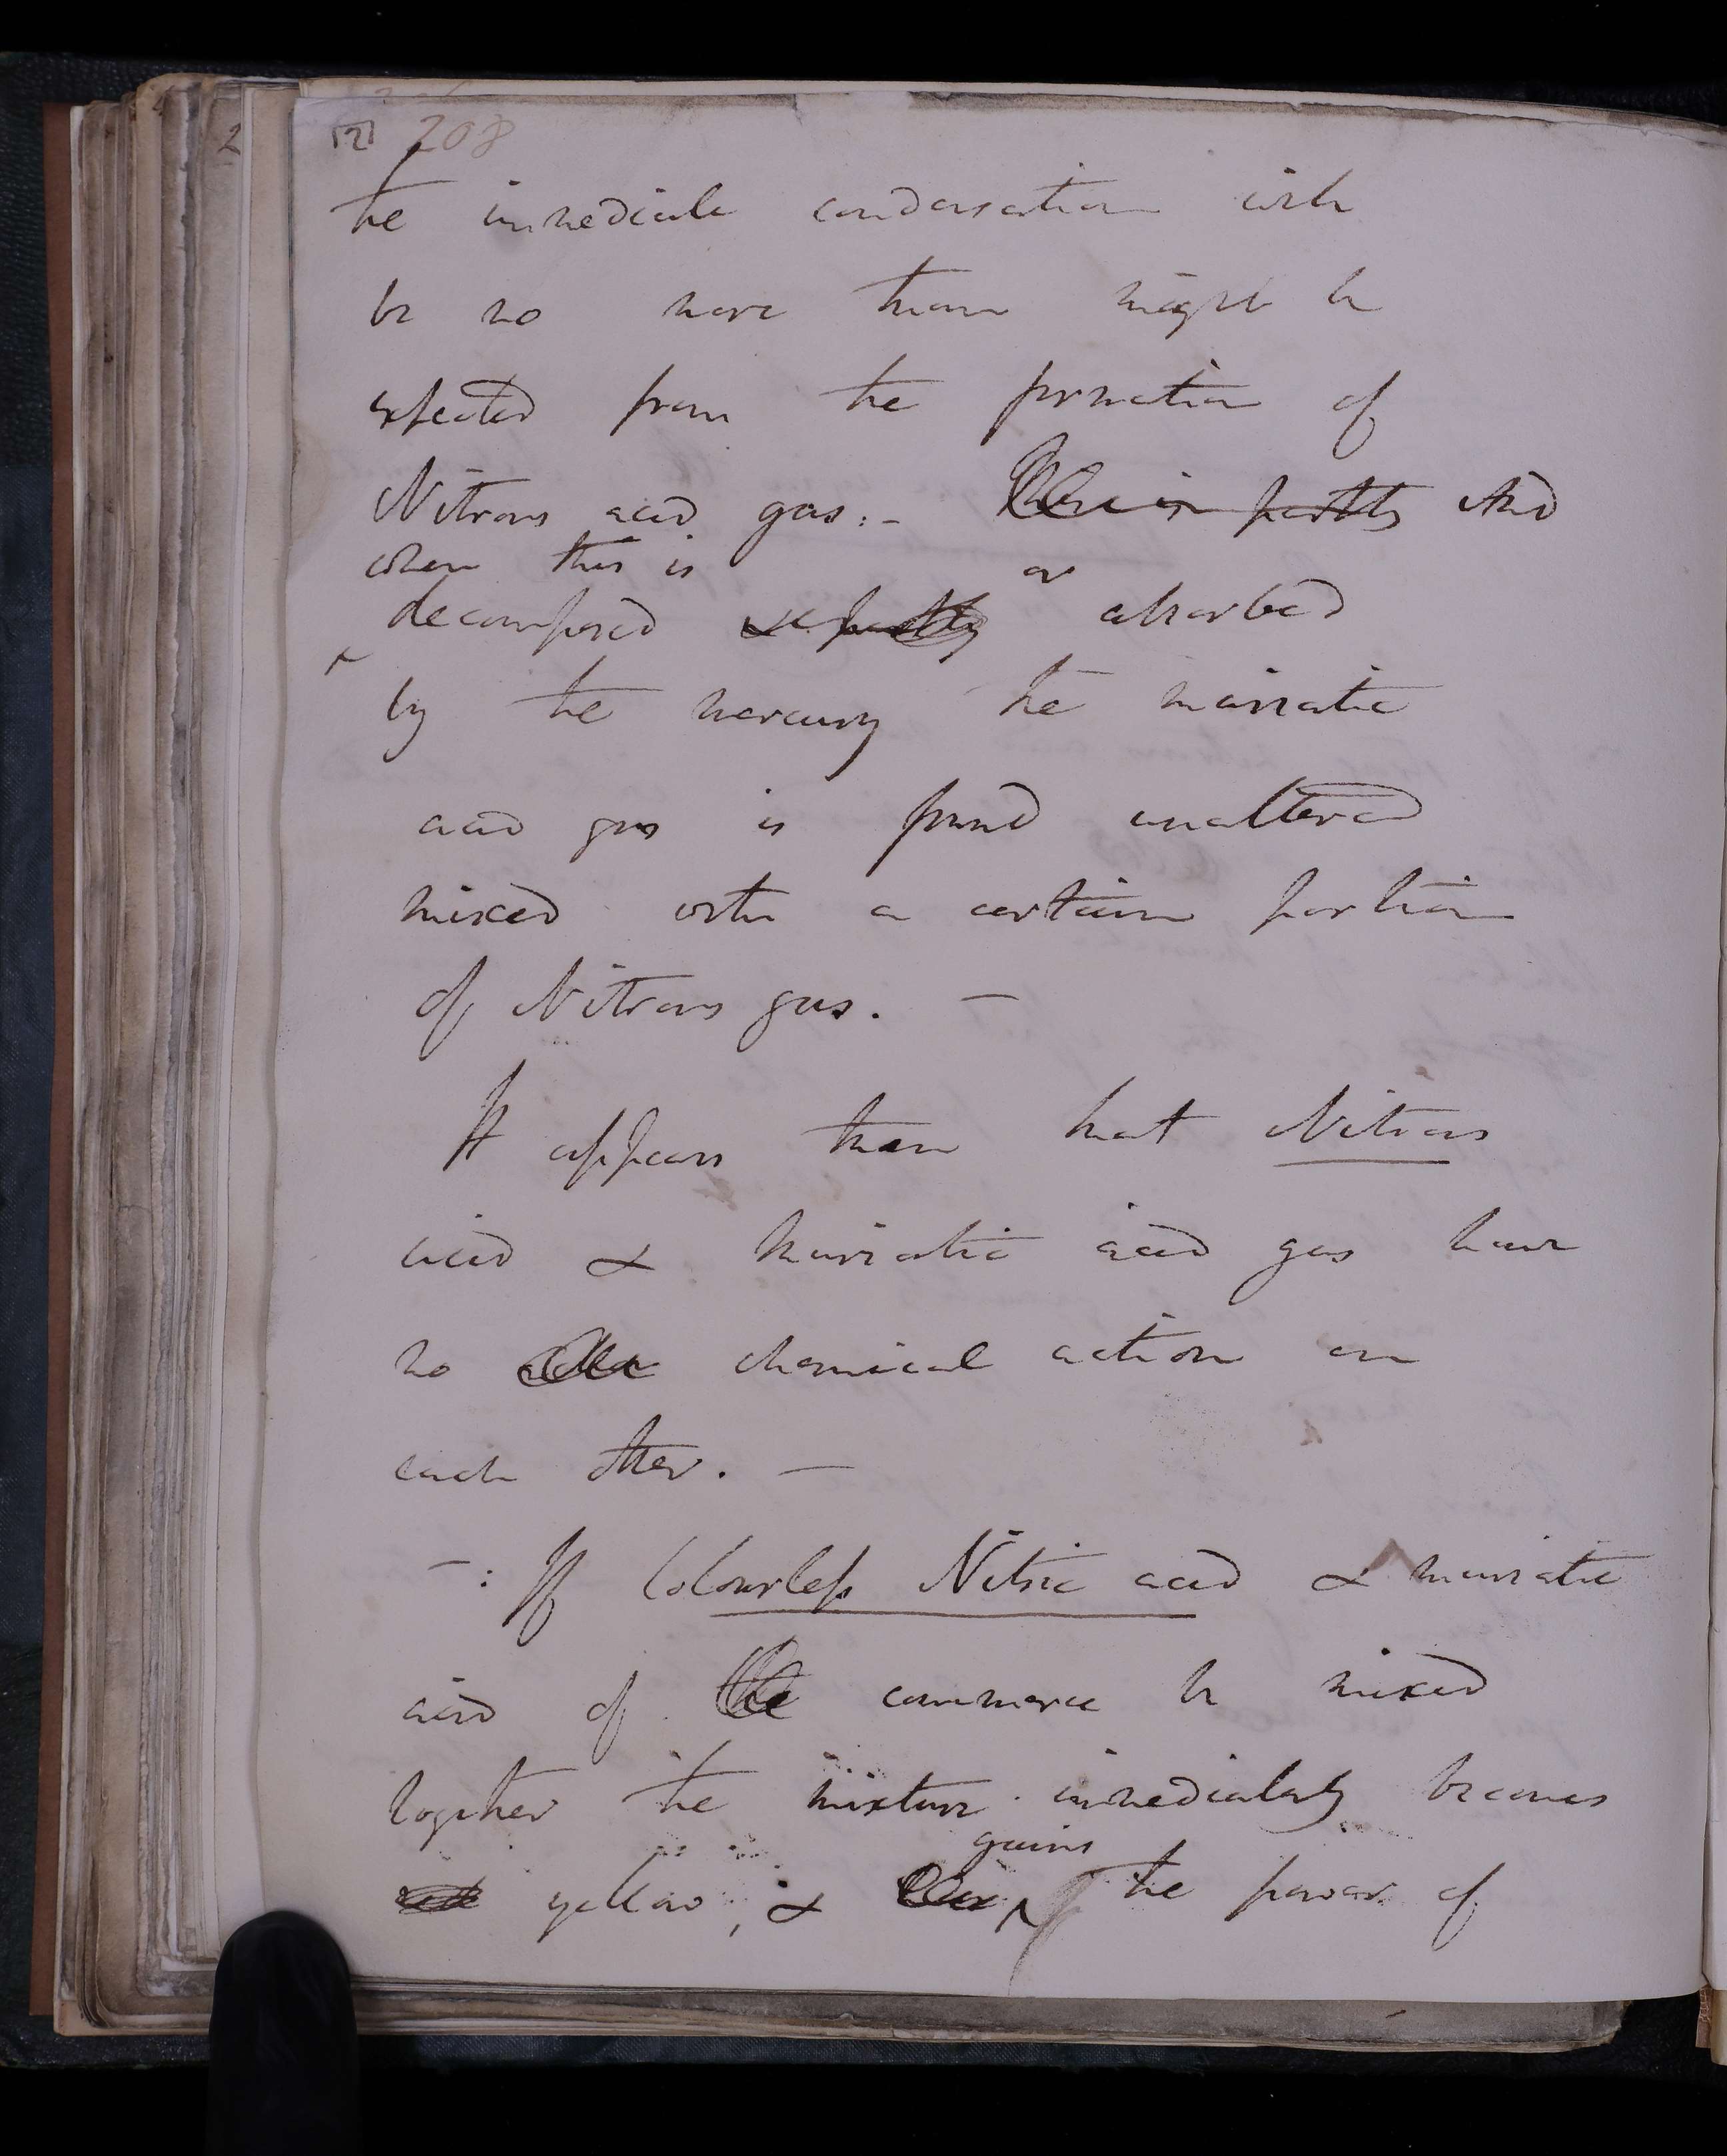 [2] 208
the immediate condensation will
be no more than might be
expected from the formation of
Nitrous acid gas:- This is partly And
when this is
decomposed & partly or absorbed
by the mercury the muriatic
acid gas is found unaltered
mixed with a certain portion
of Nitrous gas. —
It appears then that Nitrous
acid & muriatic acid gas have
no chemical action on
each other. —
—: If Colourless Nitric acid & muriatic
acid of the commerce be mixed
together the mixture immediately becomes
gains
yellow, & the power of